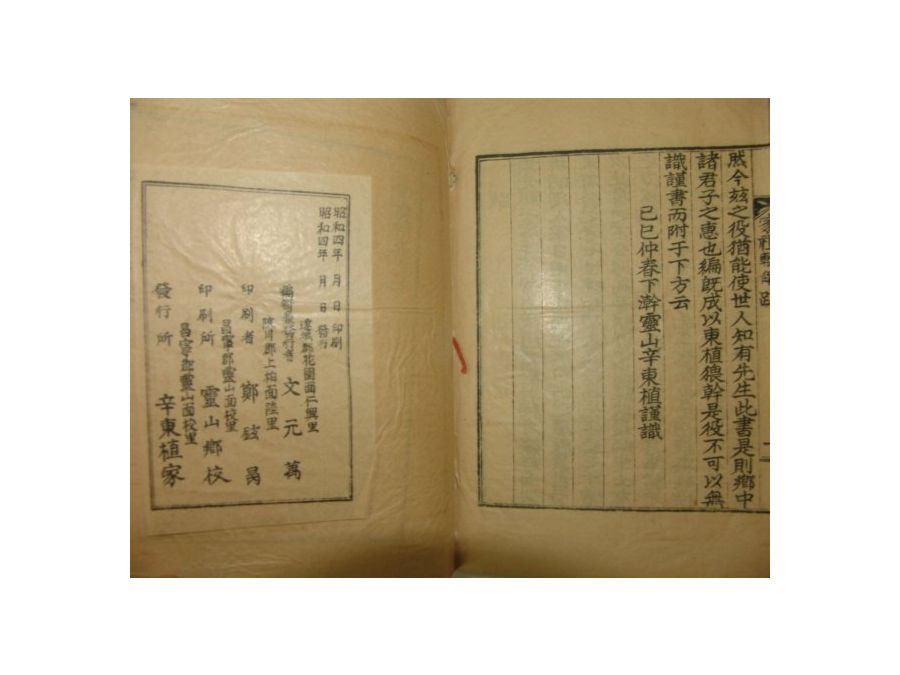 家禮輯
然今玆之役猶能使世人知有先生此書是則鄕中
諸君子之惠也編旣成以東植猥幹是役不可以無
識謹書而附于下方云
己巳仲春下澣靈山辛東植謹識
昭和四年 月 日 印刷
昭和四年 月 日 發行
花園面仁興里
文元萬
郡上栢面陸里
印刷者 鄭鉉
昌寧郡靈山面校里
印刷所 靈山鄕校
昌寧郡靈山面校里
發行所 辛東植家